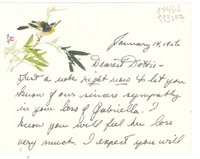 January 19, 1960
Dearest Dottie -
Just a note right now to let you
know of our sincere sympathy
in your loss of Gabriella. I
know you will feel her loss
very much. I expect you will